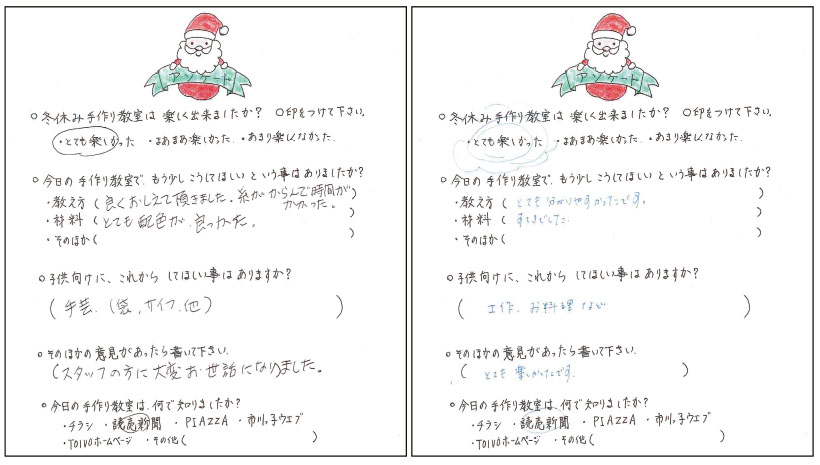 アンケート
○冬休み手作り教室は楽しく出来ましたか? ○印をつけて下さい。
・とても楽しかった ・まあまあ楽しかった ・あまり楽しくなかった
○今日の手作り教室で、もう少しこうしてほしいという事はありましたか?
・教え方(良くおしえて頂きました。糸がからんで時間がかかった。)
・材料(とても配色が良っかた。)
・そのほか( )
○子供向けに、これからしてほしい事はありますか?
(手芸、(袋、サイフ、他) )
○そのほかの意見があったら書いて下さい。
(スタッフの方に大変お世話になりました。
○今日の手作り教室は、何で知りましたか?
・チラシ ・読売新聞 ・PIAZZA ・市川っ子ウェブ
・TOIVOホームページ ・その他( )
アンケート
○冬休み手作り教室は楽しく出来ましたか? ○印をつけて下さい。
・とても楽しかった ・まあまあ楽しかった ・あまり楽しくなかった
○今日の手作り教室で、もう少しこうしてほしいという事はありましたか?
・教え方(とても分かりやすかったです。 )
・材料( )
・そのほか( )
○子供向けに、これからしてほしい事はありますか?
(工作、お料理など )
○そのほかの意見があったら書いて下さい。
(とても楽しかったです。 )
○今日の手作り教室は、何で知りましたか?
・チラシ ・読売新聞 ・PIAZZA ・市川っ子ウェブ
・TOIVOホームページ ・その他( )